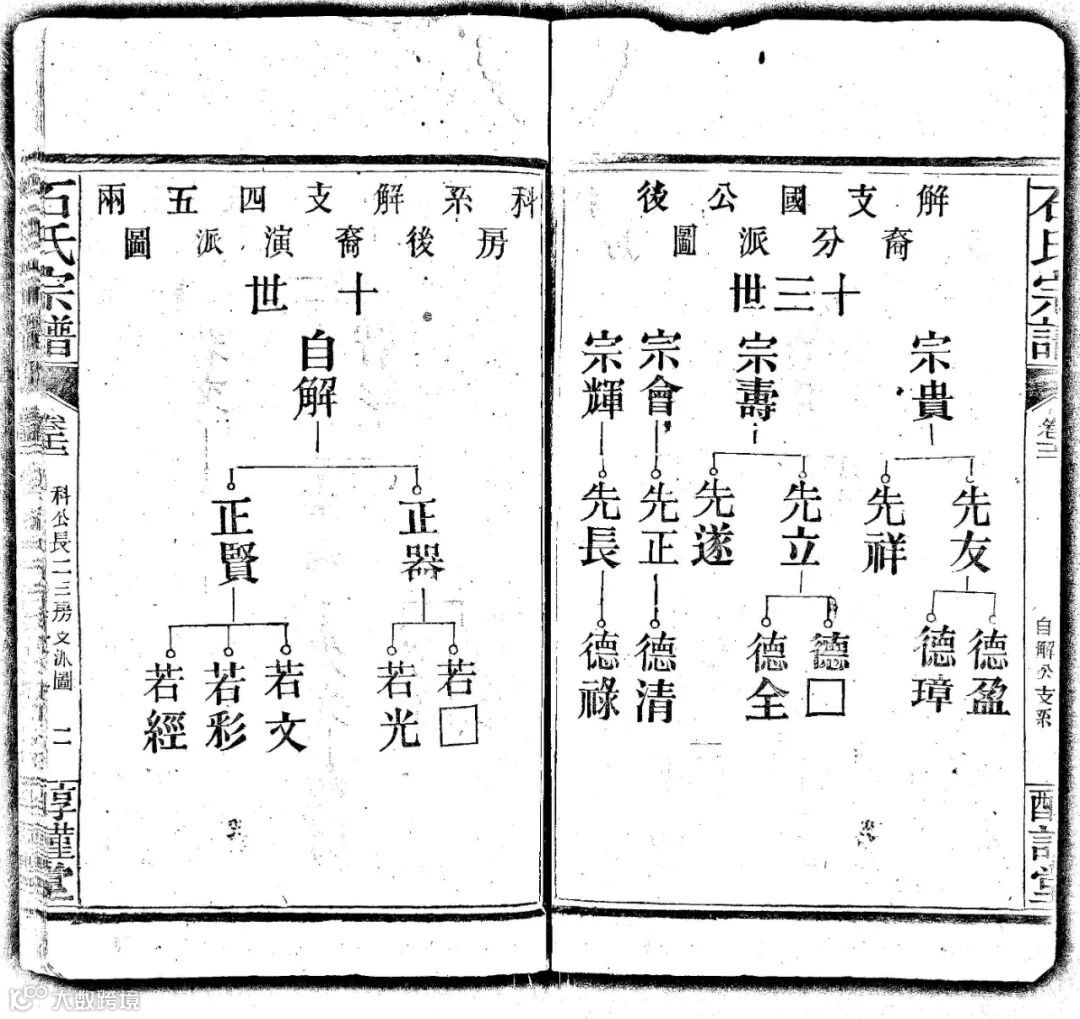 石氏宗譜
卷三
自解公支系
解支國公後
裔分派圖
十三世
宗貴
宗壽
宗會
宗輝
先友
先祥
先立
先遂
先正
先長
德盈
德璋
德□
德全
德清
德祿
科系解支四五兩
房後裔演派圖
十二世
自解
正器
正賢
若□
若光
若文
若彩
若經
石氏宗譜
卷三
科公長二三房支派圖
二
惇謹堂
大數跨境